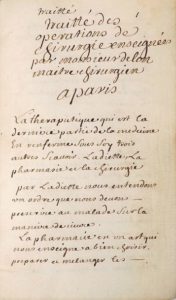 traitté
traitté des
operations de
chirurgie enseignées
par monsieur delon
maitre chirurgien
a paris
La therapeutique qui est la
derniere partie de la medecine
En renferme sous soy trois
autres scavoir La diette La
pharmacie et la chirurgie
par La diette nous entendons
un ordre que nous devons
prescrire au malade sur la
maniere de vivre.
La pharmacie en un art qui
nous enseigne a bien choisir
preparer et melanger les